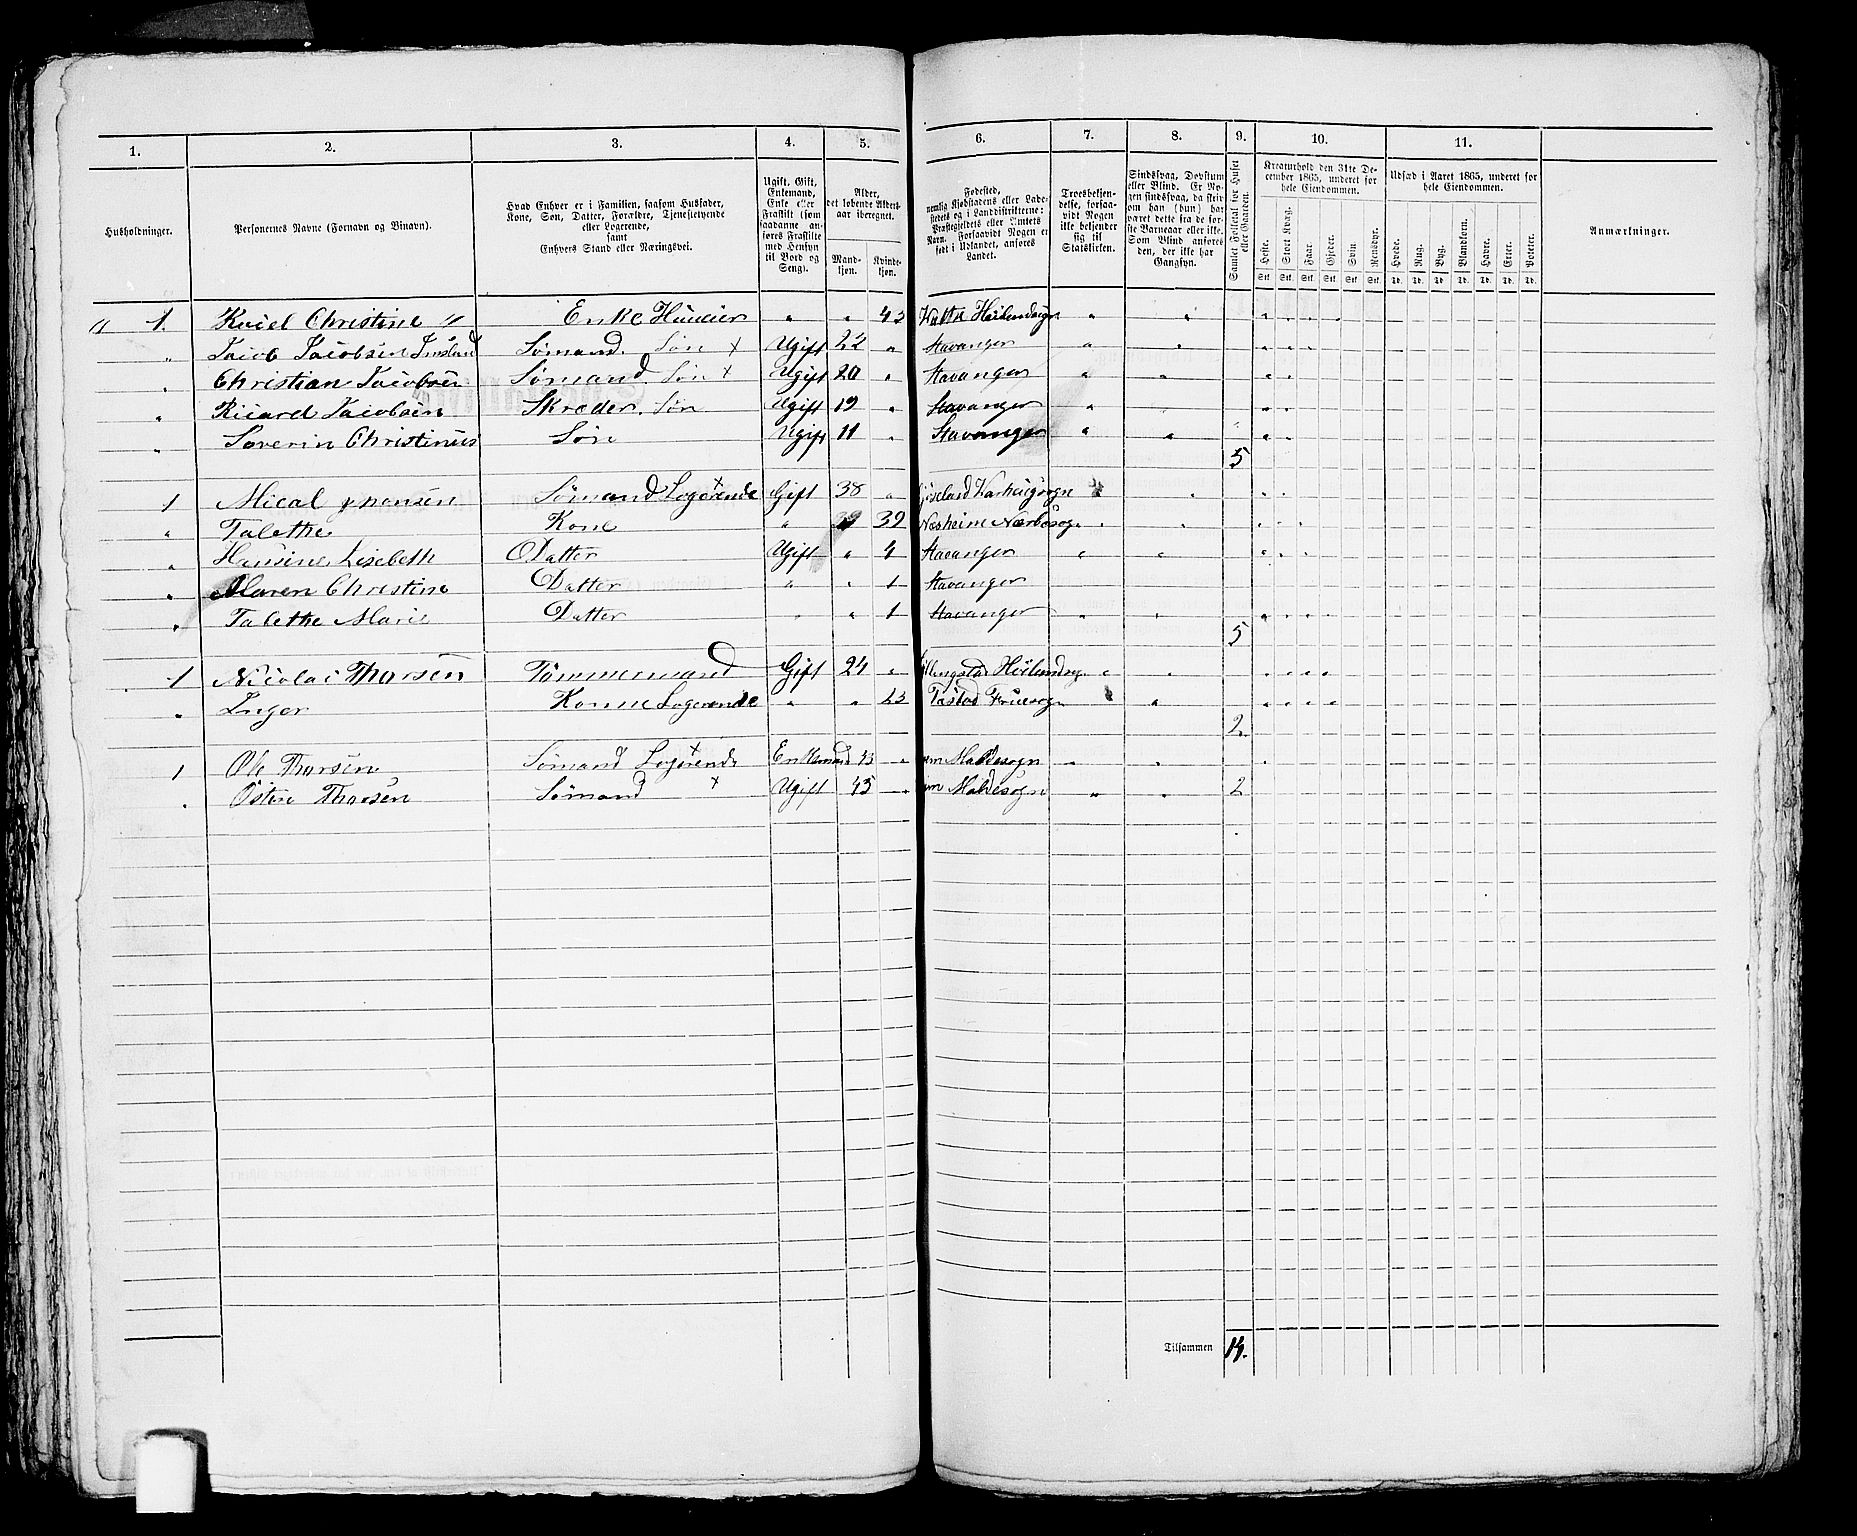 1. 2. 3. 4. 5. 6. 7. 8. 9. 10. 11.
Husholdninger.
Personernes Navne (Fornavn og Binavn).
Hvad Enhver er i Familien, saasom Husfader, Kone, Søn, Datter, Forældre, Tjenestetyende eller Logerende, samt Enhvers Stand eller Næringsvei.
Ugift, Gift, Enkemand, Enke eller Fraskilt (som saadanne anføres Fraskilte med Hensyn til Bord og Seng).
Alder, det løbende Alders-aar iberegnet.
Mand-kjøn. Kvinde-kjøn.
Fødested, nemlig Kjøbstadens eller Ladestedets og i Landdistrikterne: Præstegjeldets eller Amtets Navn. Forsaavidt Nogen er født i Udlandet, anføres Landet.
Troesbekjendelse, forsaavidt Nogen ikke bekjender sig til Statskirken.
Sindssvag, Døvstum eller Blind. Er Nogen sindssvag, da skrives om han (hun) har været dette fra de første Barneaar eller ikke. Som Blind anføres den, der ikke har Gangsyn.
Samlet Folketal for Huset eller Gaarden.
Kreaturhold den 31te December 1865, underet for hele Eiendommen.
Heste. Stort Kvæg. Faar. Gjeder. Svin. Rensdyr.
Stk. Stk. Stk. Stk. Stk. Stk.
Udsæd i Aaret 1865, underet for hele Eiendommen.
Hvede. Rug. Byg. Blandkorn. Havre. Erter. Poteter.
Td. Td. Td. Td. Td. Td. Td.
Anmærkninger.
" 1 Christine " Enke Huuseier " " 43
" Jacob Jacobsen Sømand. Søn x Ugift 22 " Stavanger
" Christian Jacobsen Sømand. Søn x Ugift 20 " Stavanger
" Ricard Jacobsen Skræder. Søn Ugift 19 " Stavanger
" Soverin Christinus Søn Ugift 11 " Stavanger
5
1 Mical Sømand Logerende x Gift 38 "
" Talethe Kone " 39 Næsheim Nærbøsog
" Hansine Lisebeth Datter Ugift " 4 Stavanger
" Maren Christine Datter " " 1 Stavanger
" Talethe Marie Datter " " 1 Stavanger
5
1 Nicolai Thorsen Tømmermand Gift 24 "
" Inger Konne Logerende " " 23 Tastad Fruesogn
2
1 Ole Thorsen Sømand Logerende x Enkemand 43 " Maldesogn
" Østen Thorsen Sømand x Ugift 45 " Maldesogn 2
Tilsammen 14.